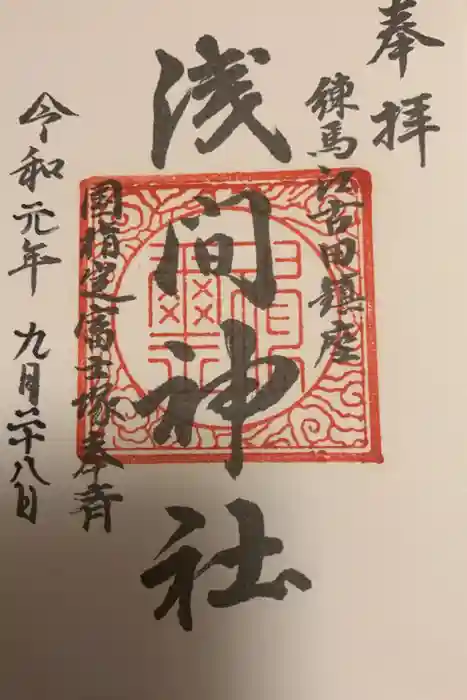 奉拝
練馬江古田鎮座
浅間神社
国指定富士塚奉斉
令和元年 九月二十八日